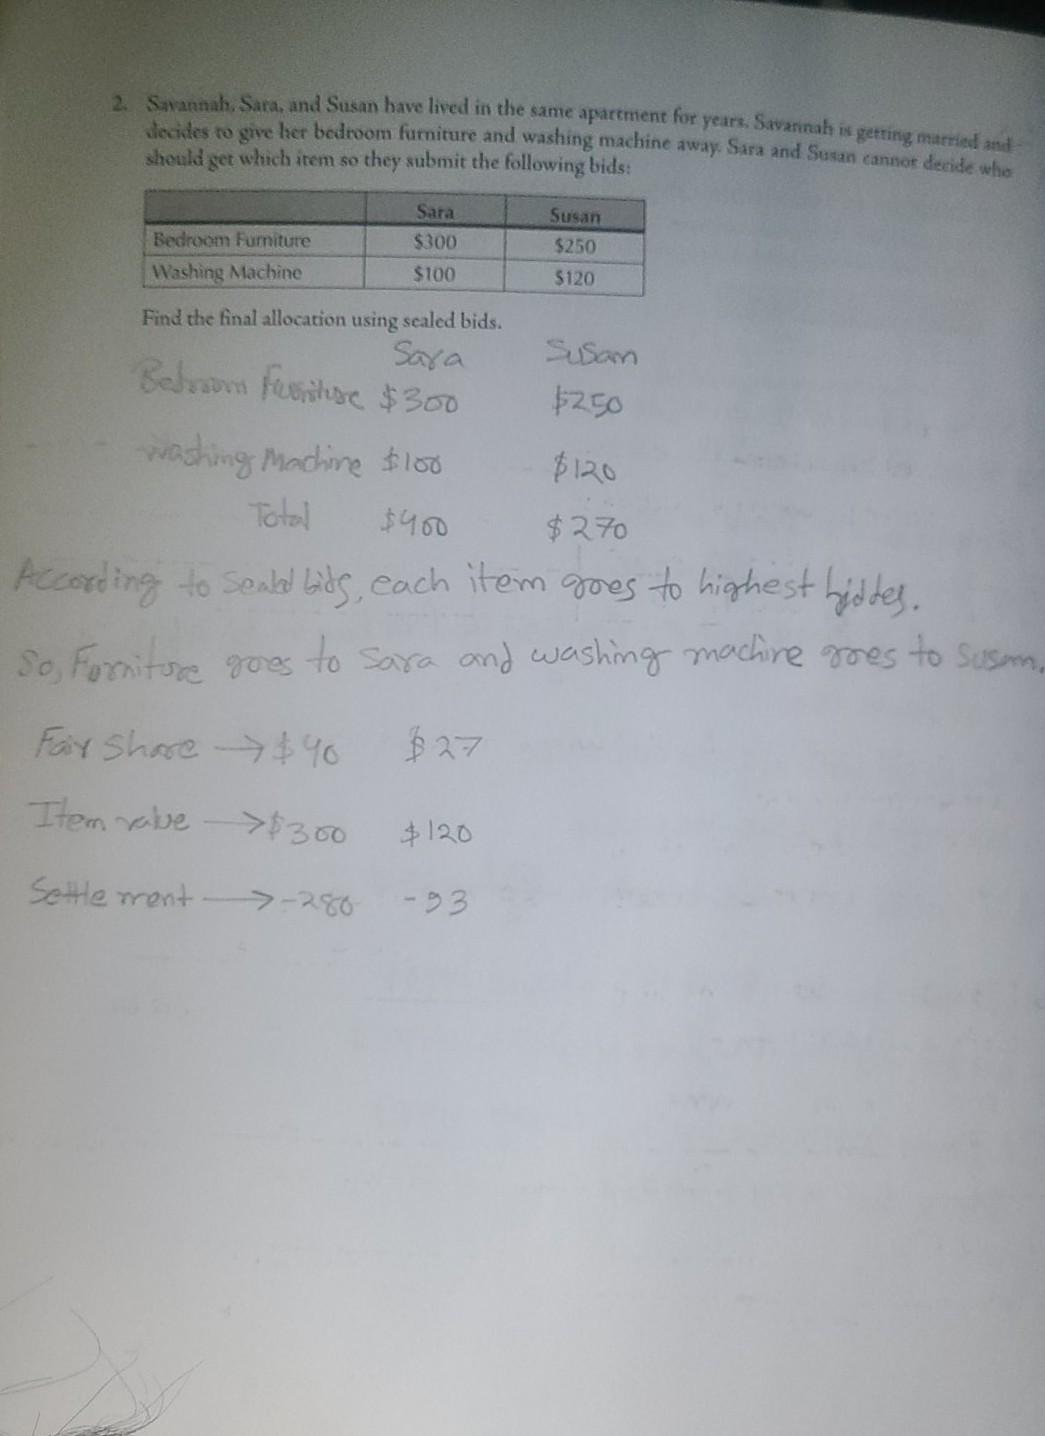 2. Savannah, Sara, and Susan have lived in the same apartment for years. Savannah is getting married and
decides to give her bedroom furniture and washing machine away. Sara and Susan cannot decide who
should get which item so they submit the following bids:
Sara Susan
Bedroom Furniture $300 $250
Washing Machine $100 $120
Find the final allocation using sealed bids.
Sara Susan
Bedroom Furniture $300 $250
washing Machine $100 $120
Total $400 $270
According to Sealed bids, each item goes to highest bidder.
So, Forniture goes to Sara and washing machine goes to Susan.
Fair Share → $40 $27
Item value → $300 $120
Settlement → -280 -93